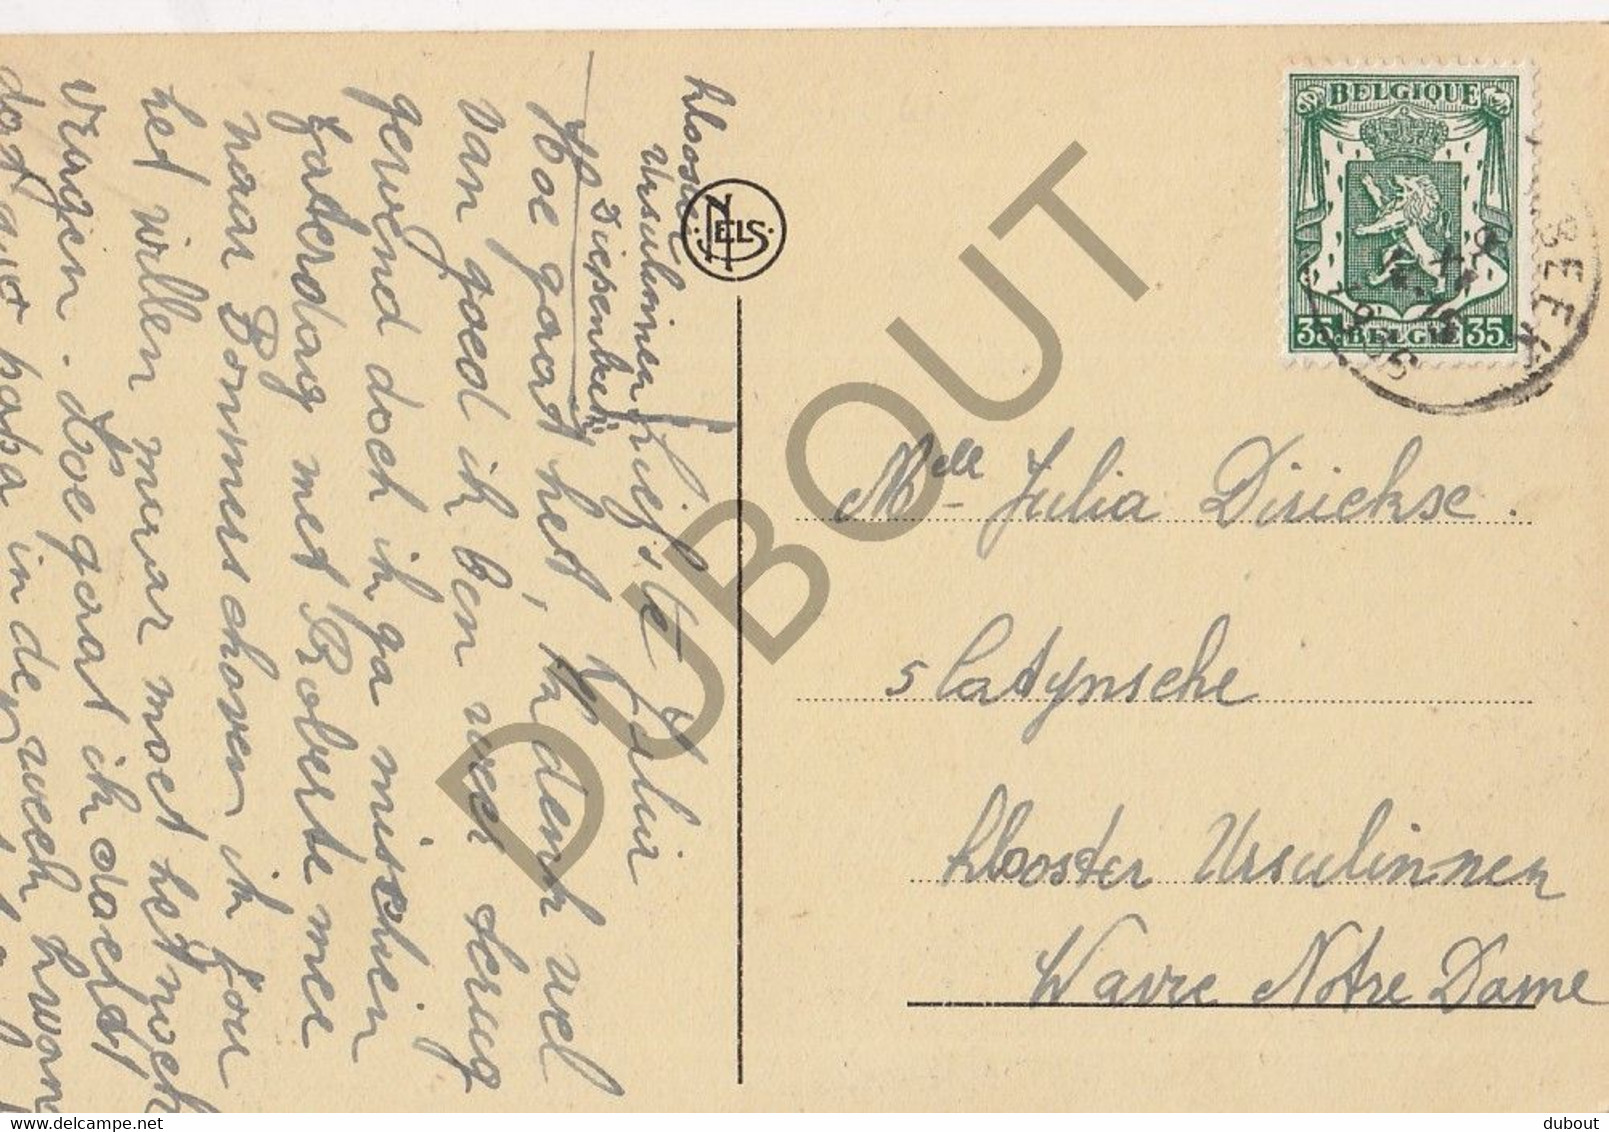 Klooster
Ursulinnen
Diepenbeek
Liefste Julia
Hoe gaat het, ik denk wel
van goed ik ben weer terug
gewend doch ik ga mischien
zaterdag met Roberte mee
naar Bommerschoven ik zou
het willen maar moet het noch
vragen. Hoe gaat ik dacht
dat papa in de week kwam
NELS
BELGIQUE
35 BELGIE 35
BEEK
1936
Melle Julia Dirickse.
5 Latynsche
Klooster Ursulinnen
Wavre Notre Dame
DUBOUT
delcampe.net
dubout